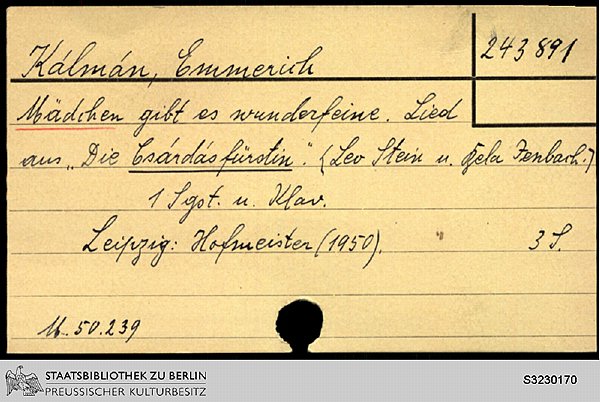 Kálmán, Emmerich
243891
Mädchen gibt es wunderfeine. Lied
aus „Die Csárdásfürstin". (Leo Stein u. Bela Jenbach.)
1 Sgst. u. Klav.
Leipzig: Hofmeister (1950). " 3 S.
M. 50.239
STAATSBIBLIOTHEK ZU BERLIN
PREUSSISCHER KULTURBESITZ
S3230170